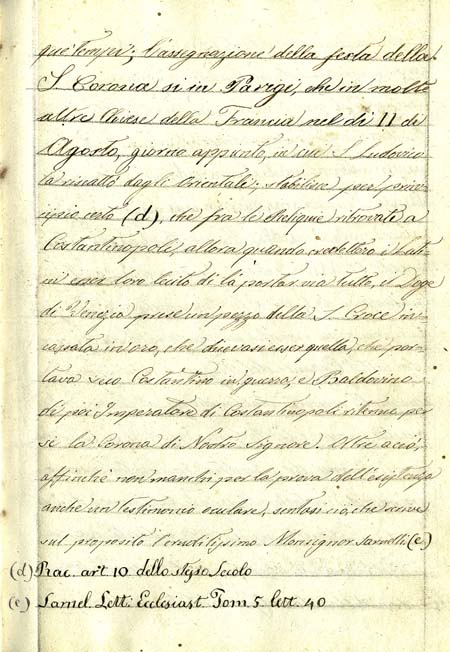 que' tempi; l'assegnazione della festa della
S. Corona sì in Parigi, che in molte
altre Chiese della Francia nel dì 11 di
Agosto, giorno appunto, in cui S. Ludovico
la riscattò dagli Orientali; stabilisce per prin-
cipio certo (d), che fra le Reliquie ritrovate a
Costantinopoli, allora quando credettero i Lati-
ni esser loro lecito di là portar via tutto, il Doge
di Venezia prese un pezzo della S. Croce in-
cassata in oro, che dicevasi esser quella, che por-
tava seco Costantino in guerra; e Baldovino
di poi Imperatore di Costantinopoli ritenne per
sè la Corona di Nostro Signore. Oltre a ciò,
affinchè non manchi per la prova dell'esistenza
anche un testimonio oculare, sentasi ciò, che scrive
sul proposito l'eruditissimo Monsignor Sarnelli. (e)
(d) Rac. art. 10 dello stesso Secolo
(e) Sarnel. Lett. Ecclesiast. Tom. 5. lett. 40